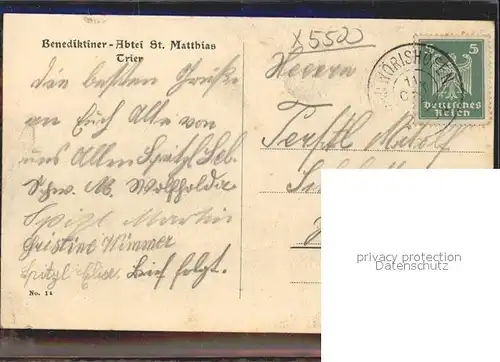 Benediktiner-Abtei St. Matthias
Trier
Die besten Grüße
an Euch Alle von
uns Allen Spitzl Seb.
Schw. M. Wolfholda
Spizl Martin
Christine Wimmer
Spitzl Elise. Brief folgt.
No. 14
x 5500
Herrn
WÖRISHOFEN
5
Deutsches
Reich
privacy protection
Datenschutz